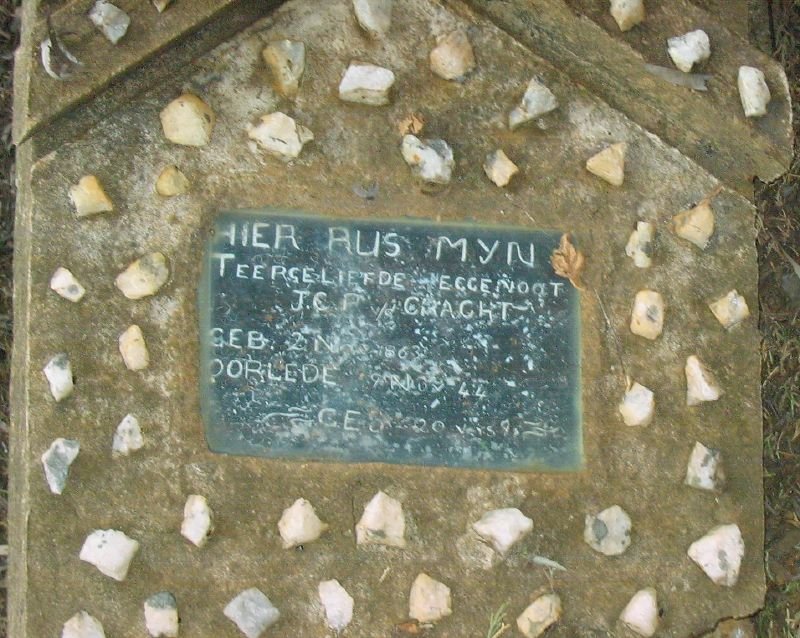 HIER RUS MYN
TEERGELIEFDE EGGENOOT
J.C.P. v/d GRACHT
GEB. 2 N 1863
OORLEDE 9 NOV 44
GES. 20 vers 9.